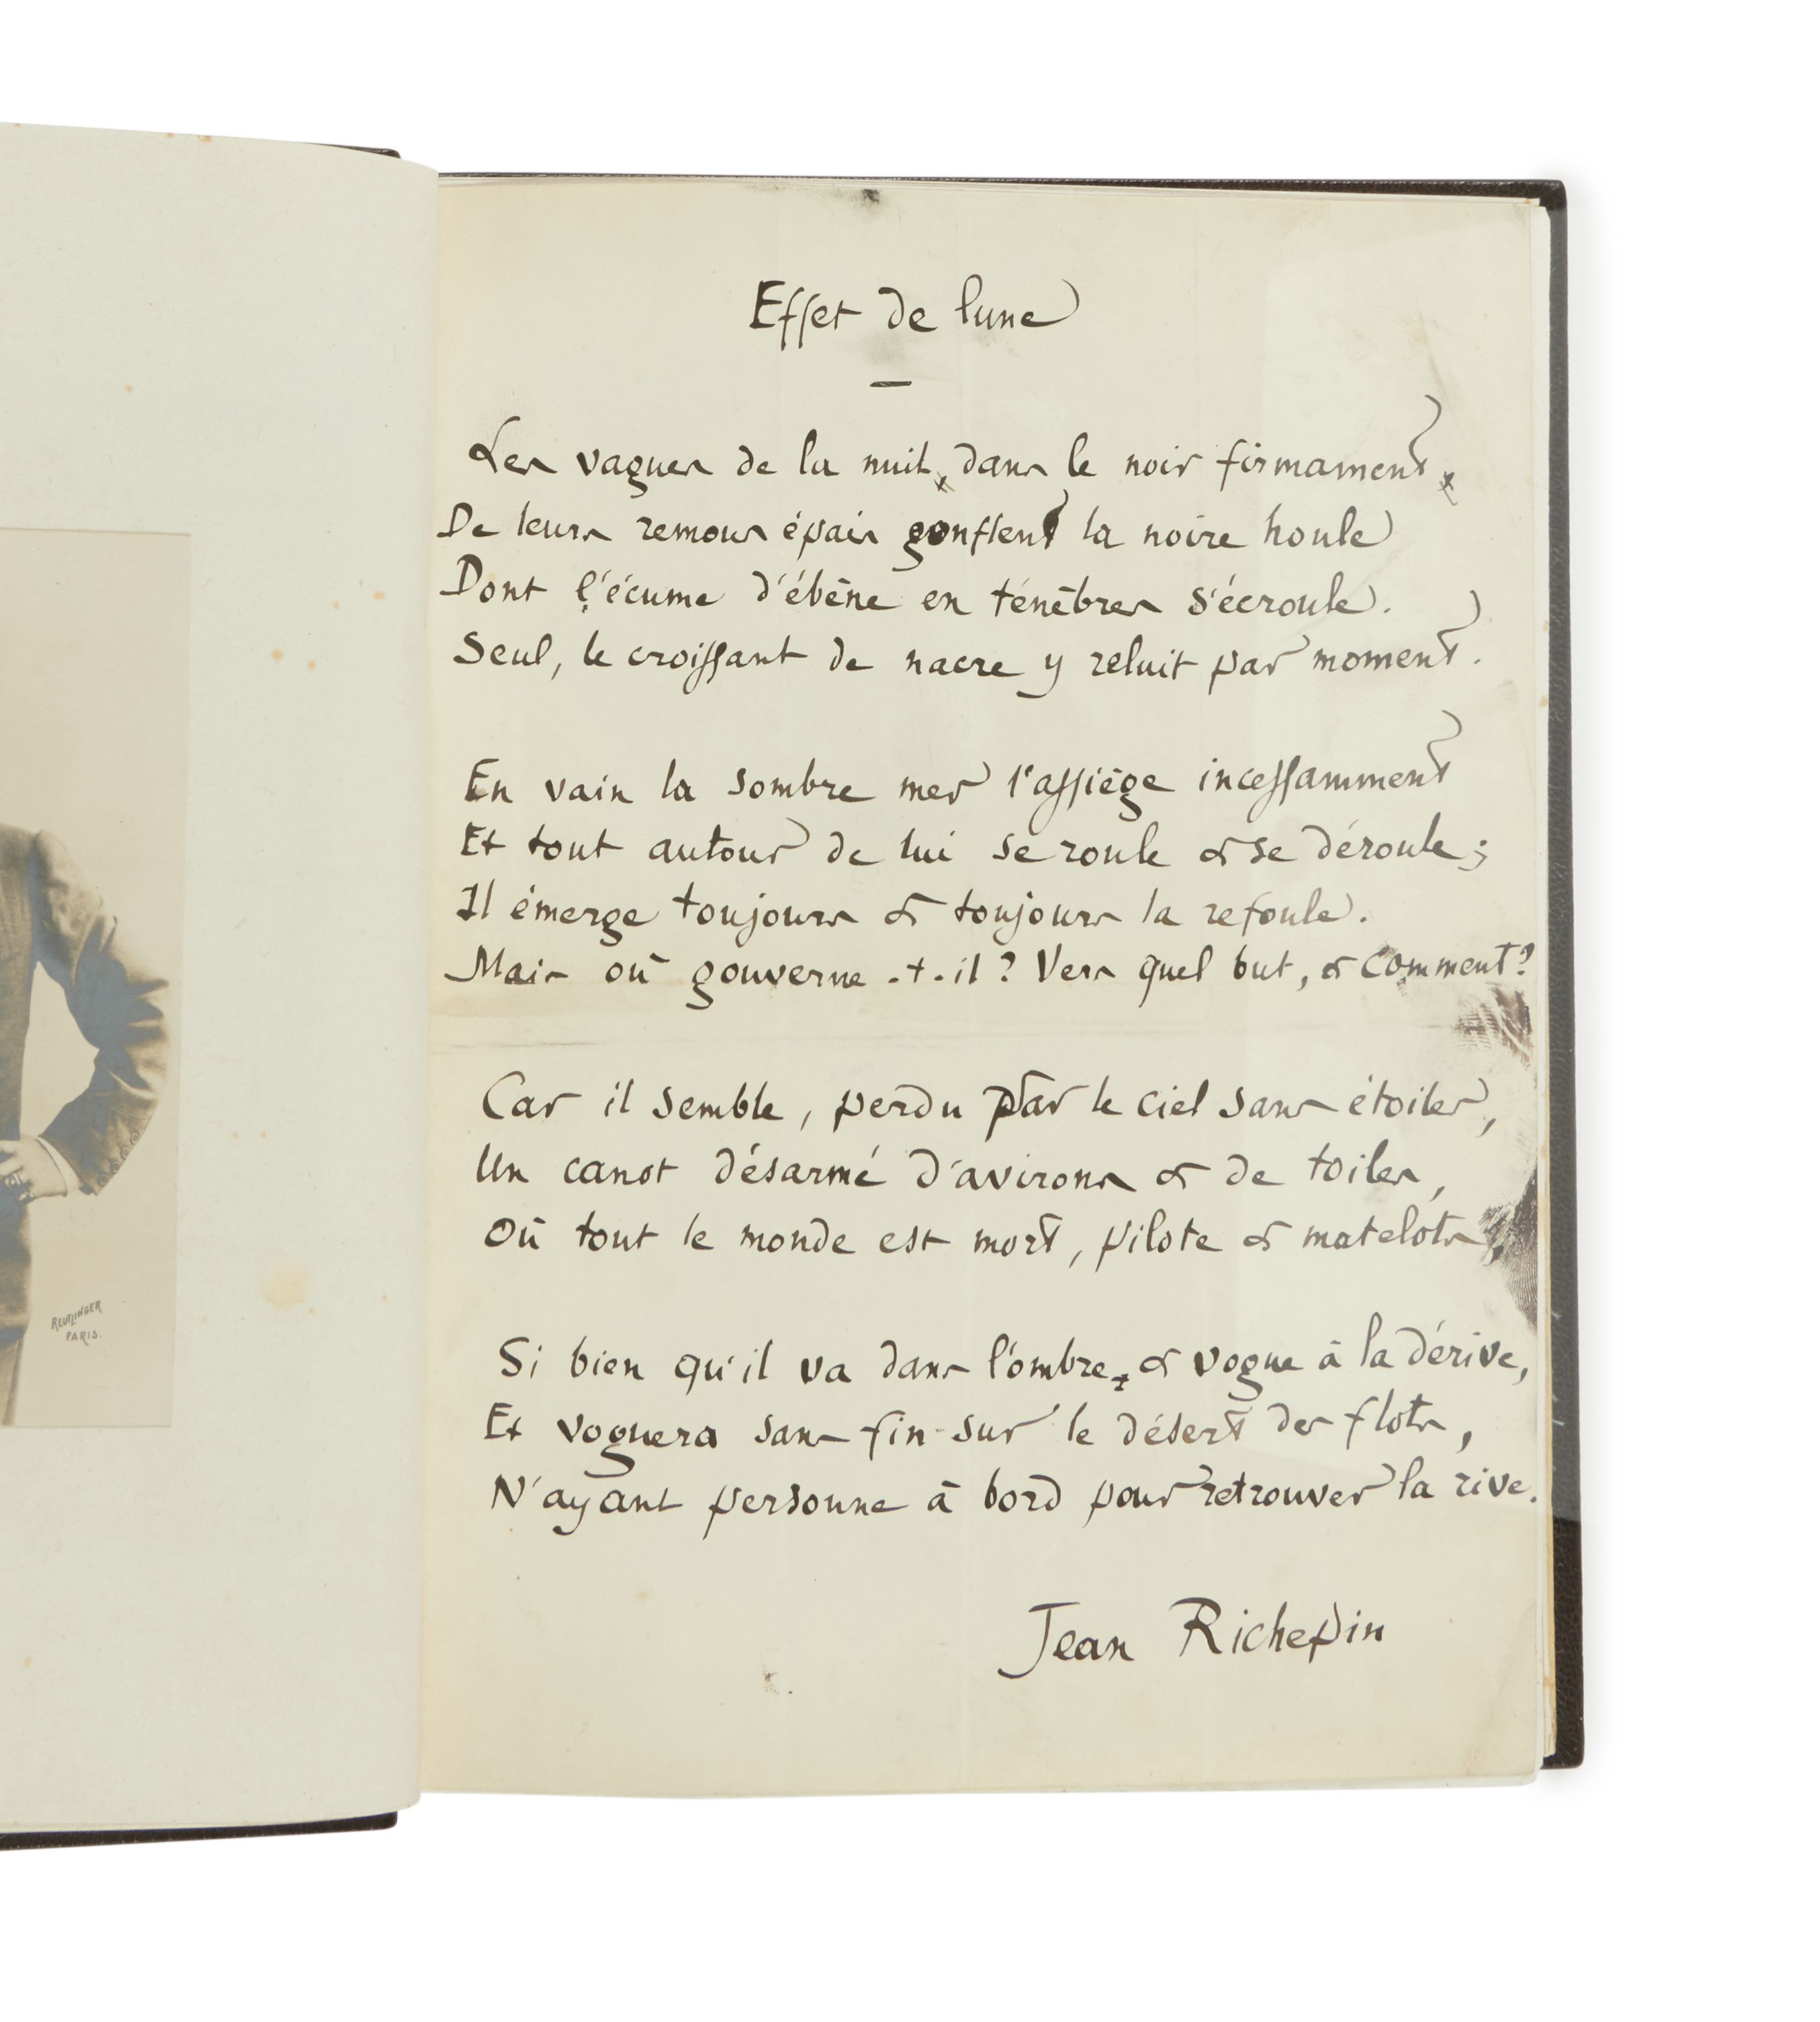 Effet de lune
Les vagues de la nuit, dans le noir firmament,
De leurs remous épais gonflent la noire houle
Dont l'écume d'ébène en ténèbres s'écroule.
Seul, le croissant de nacre y reluit par moment.
En vain la sombre mer l'assiège incessamment
Et tout autour de lui se roule & se déroule ;
Il émerge toujours & toujours la refoule.
Mais où gouverne-t-il ? Vers quel but, & comment ?
Car il semble, perdu par le ciel sans étoiles,
Un canot désarmé d'avirons & de toiles,
Où tout le monde est mort, pilote & matelots,
Si bien qu'il va dans l'ombre, & vogue à la dérive,
Et voguera sans fin sur le désert des flots,
N'ayant personne à bord pour retrouver la rive.
Jean Richepin
REUTLINGER
PARIS.